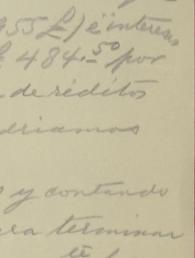 955 £) é intereses
£ 484.50 por
de réditos
driamos
s y contando
ra terminar